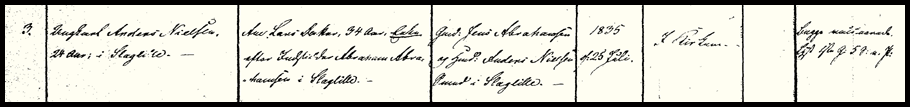 3.
Ungkarl Anders Nielsen,
24 Aar, i Slaglille. —
Ane Lars Datter, 34 Aar, Enke
efter Indsidder Abraham Abra-
hamsen i Slaglille. —
Gmd. Jens Abrahamsen
og Gmd. Anders Nielsen
i Slaglille. —
1835
d. 25 Juli.
I Kirken.
Begge